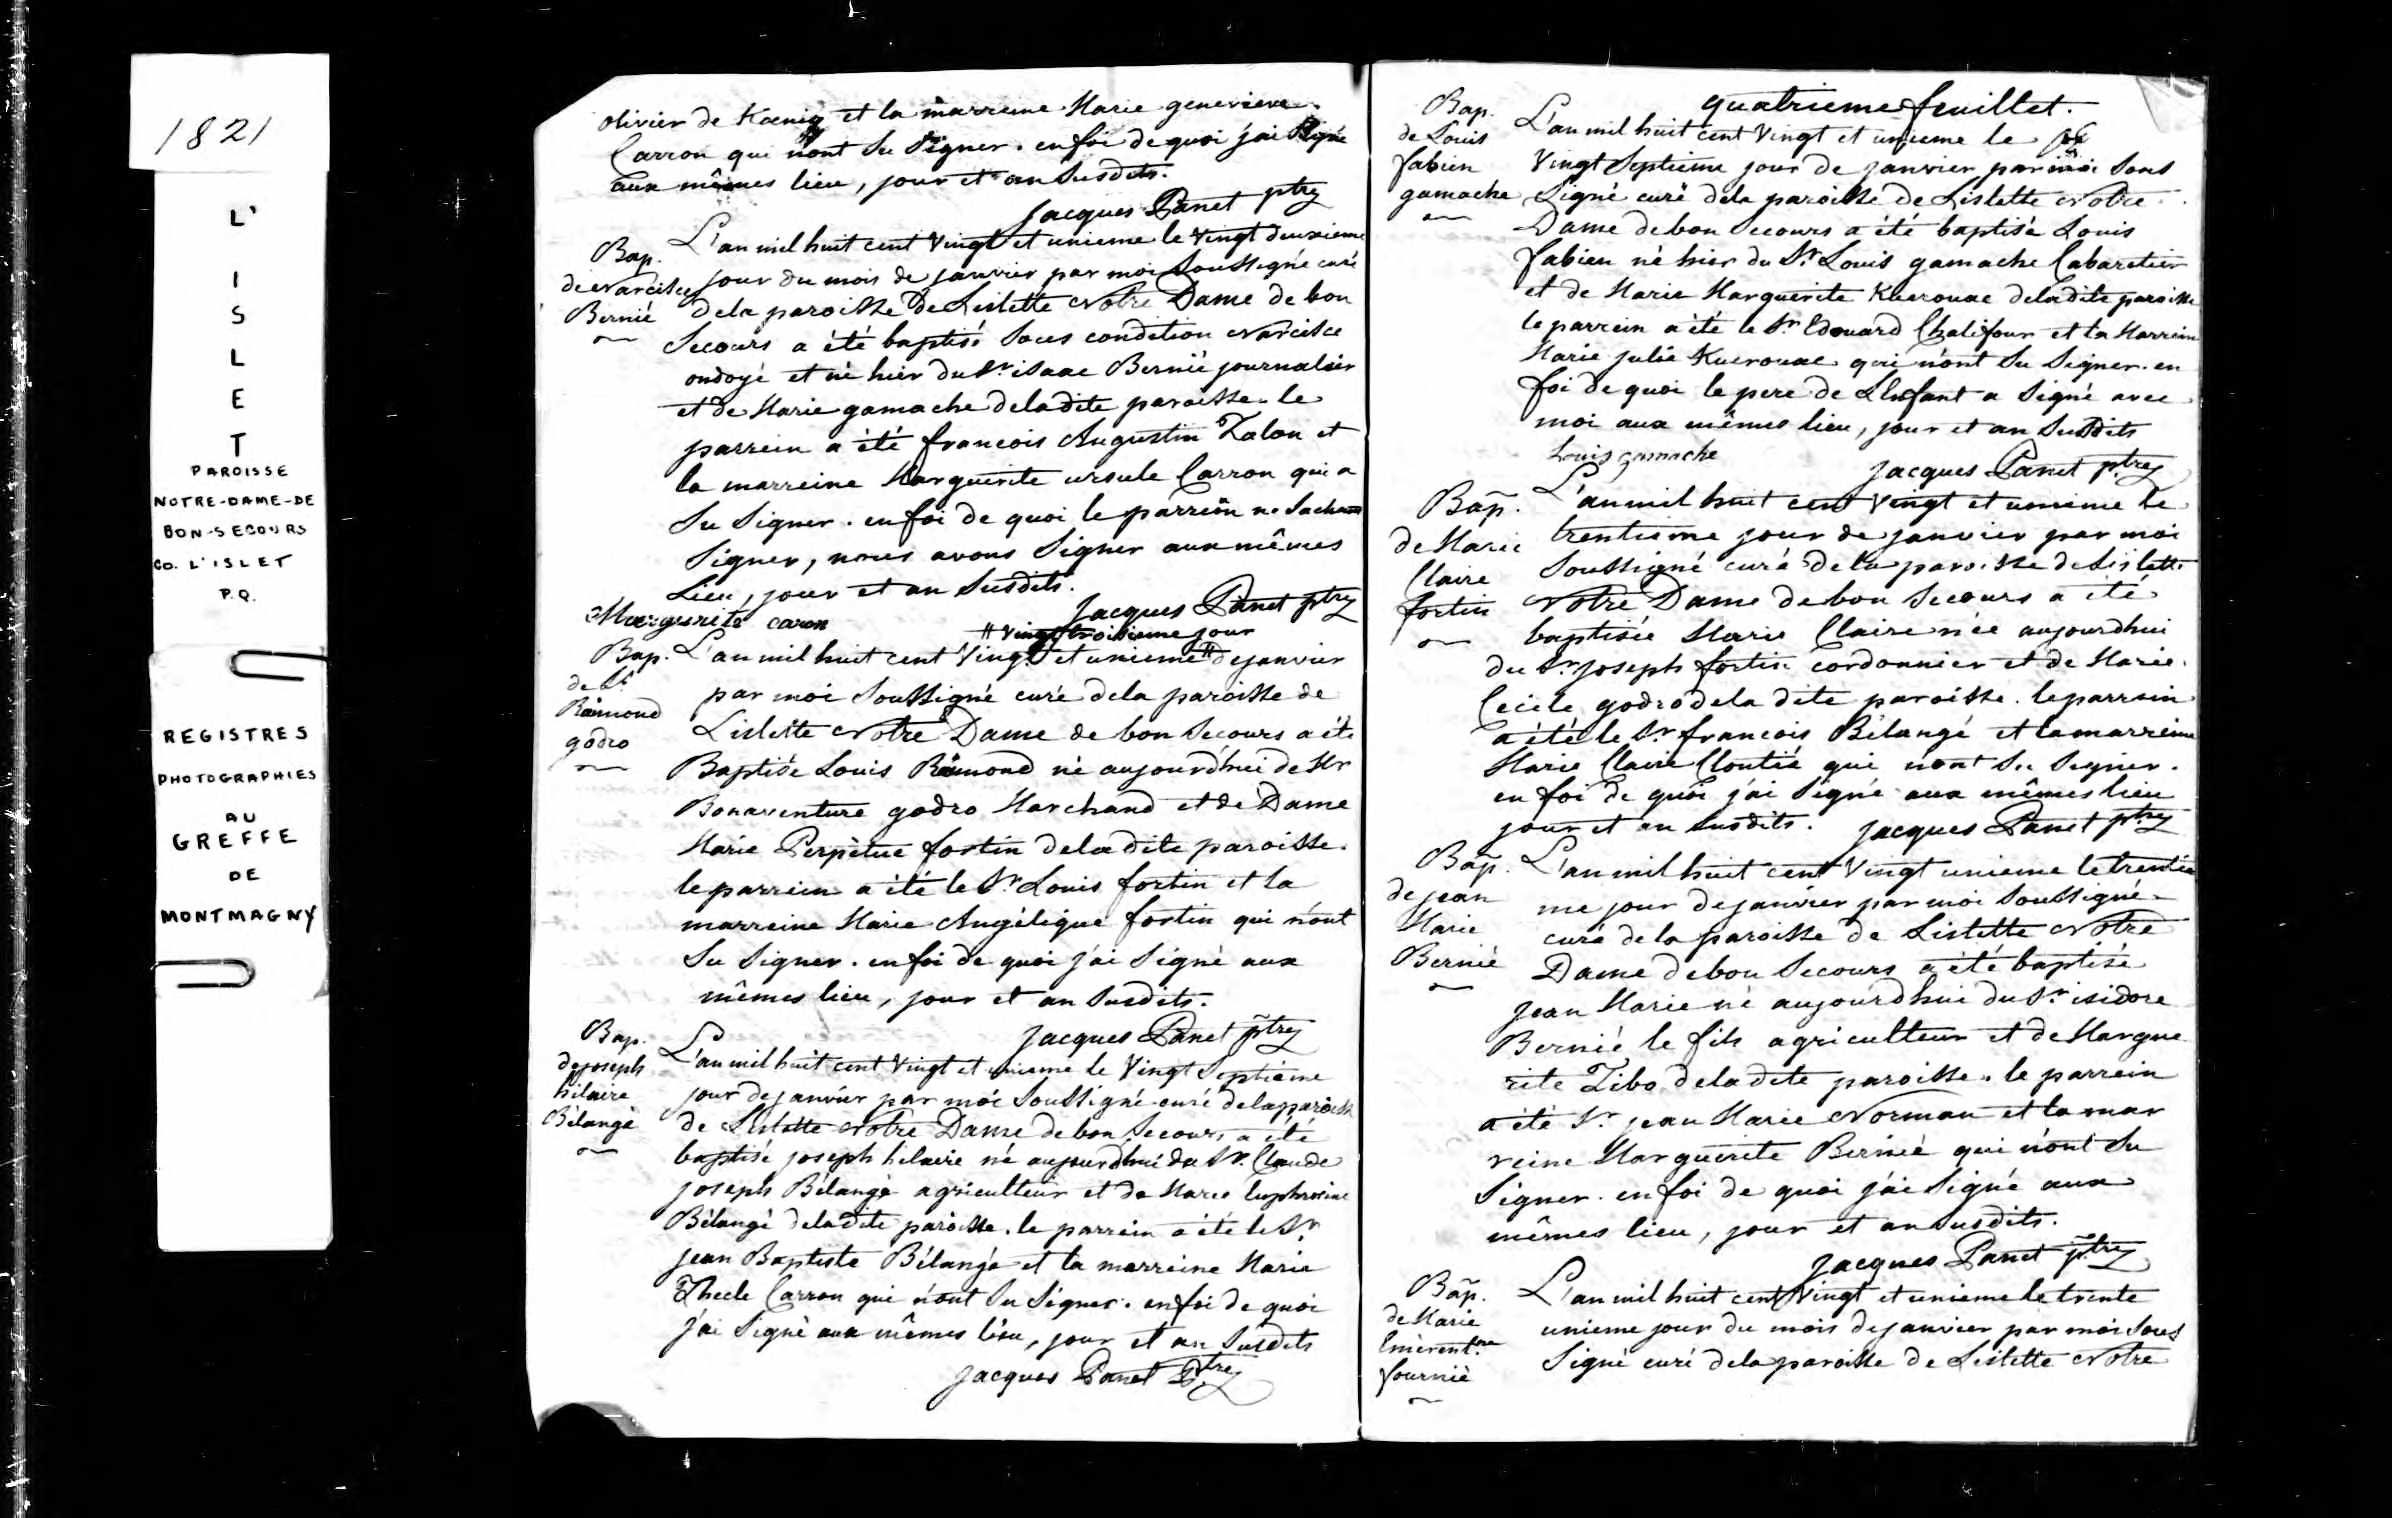 1821
L'
I
S
L
E
T
PAROISSE
NOTRE-DAME-DE
BON-SECOURS
CO. L'ISLET
P.Q.
REGISTRES
PHOTOGRAPHIES
AU
GREFFE
DE
MONTMAGNY
olivier de Kœnig et la marreine Marie genevieve
Carron qui n'ont su signer. en foi de quoi j'ai signé
aux mêmes lieu, jour et an susdits.
Jacques Panet ptre
Bap.
de Narcisse
Bernié
L'an mil huit cent vingt et unieme le vingt deuxieme
jour du mois de janvier par moi soussigné curé
dela paroisse De Lislette Notre Dame de bon
Secours a été baptisé sous condition Narcisse
ondoyé et né hier du Sr. isaac Bernié journalier
et de Marie gamache deladite paroisse. le
parrein a été francois Augustin Talon et
la marreine Marguerite ursule Carron qui a
su signer. en foi de quoi le parrein ne sachant
signer, nous avons signer aux mêmes
Lieu, jour et an susdits.
Marguerite caron
Jacques Panet ptre
Bap.
de Ls
Raimond
godro
# vingt troisieme jour
L'an mil huit cent vingt et unieme # dejanvier
par moi soussigné curé dela paroisse de
Lislette Notre Dame de bon Secours a été
Baptisée Louis Raimond né aujourd'hui de Mr
Bonaventure godro Marchand et de Dame
Marie Perpétue fortin deladite paroisse.
le parrein a été le Sr. Louis fortin et la
marreine Marie Angélique fortin qui n'ont
su signer. en foi de quoi j'ai signé aux
mêmes lieu, jour et an susdits.
Jacques Panet ptre
Bap.
de joseph
hilaire
Bélangé
L'an mil huit cent vingt et unieme le vingt septieme
jour dejanvier par moi soussigné curé delaparoisse
de Lislette Notre Dame de bon Secours a été
baptisé joseph hilaire né aujourdhui du Sr. Claude
joseph Bélangé agriculteur et de Marie Euphrosine
Bélangé deladite paroisse. le parrein a été le Sr.
jean Baptiste Bélangé et la marreine Marie
Thecle Carron qui n'ont su signer. en foi de quoi
j'ai signé aux mêmes lieu, jour et an susdits
Jacques Panet Ptre
quatrieme feuillet.
Bap.
de Louis
fabien
gamache
L'an mil huit cent vingt et unieme le
vingt septieme jour de janvier par moi sous
signé curé dela paroisse de Lislette Notre
Dame de bon Secours a été baptisé Louis
fabien né hier du Sr. Louis gamache Cabaretier
et de Marie Marguerite Kuerouac deladite paroisse
le parrein a été le Sr. Edouard Chalifour et la Marreine
Marie julie Kuerouac qui n'ont su signer. en
foi de quoi le pere de L'Enfant a signé avec
moi aux mêmes lieu, jour et an susdits
Louis gamache
Jacques Panet ptre
Bap.
de Marie
Claire
fortin
L'an mil huit cent vingt et unieme le
trentieme jour de janvier par moi
soussigné curé dela paroisse de Lislette
Notre Dame de bon Secours a été
baptisée Marie Claire née aujourdhui
du Sr. joseph fortin cordonnier et de Marie
Cecile godro dela dite paroisse. le parrein
a été le Sr. francois Bélangé et la marreine
Marie Claire Cloutié qui n'ont su signer.
en foi de quoi j'ai signé aux mêmes lieu
jour et an susdits.
Jacques Panet ptre
Bap.
de jean
Marie
Bernié
L'an mil huit cent vingt unieme le trentie
me jour dejanvier par moi soussigné
curé de la paroisse de Lislette Notre
Dame de bon Secours a été baptisé
jean Marie né aujourdhui du Sr. isidore
Bernié le fils agriculteur et de Margue
rite Tibo deladite paroisse. le parrein
a été Sr. jean Marie Norman et la mar
reine Marguerite Bernié qui n'ont su
signer. en foi de quoi j'ai signé aux
mêmes lieu, jour et an susdits.
Jacques Panet ptre
Bap.
de Marie
Emerentne
fournié
L'an mil huit cent vingt et unieme le trente
unieme jour du mois dejanvier par moi sous
signé curé dela paroisse de Lislette Notre